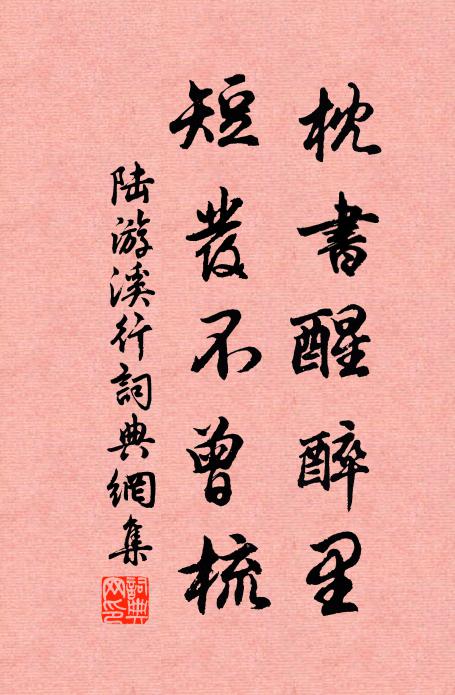 枕書醒醉里
短發不曾梳
陆游溪行詞典網集
詞典網印